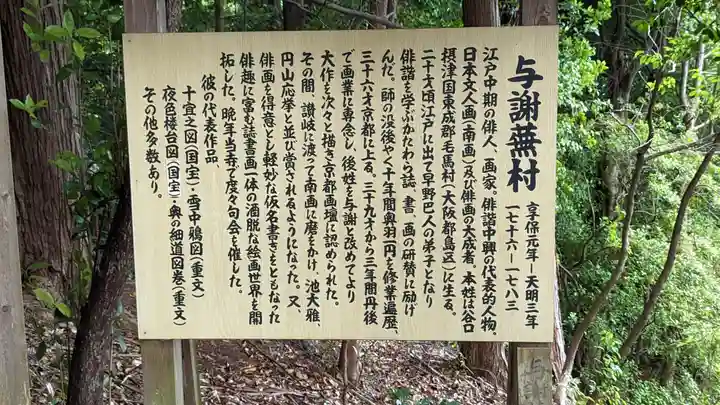 与謝蕪村
享保元年―天明三年
一七十六―一七八三
江戸中期の俳人、画家。俳諧中興の代表的人物。
日本文人画(南画)及び俳画の大成者、本姓は谷口
摂津国東成郡毛馬村(大阪都島区)に生る。
二十才頃江戸に出て早野巴人の弟子となり
俳諧を学ぶかたわら誌、書、画の研賛に励げ
んだ。師の没後やく十年間奥羽一円を修業遍歴、
三十六才京都に上る。三十九才から三年間丹後
で画業に専念し、後姓を与謝と改めてより
大作を次々と描き京都画壇に認められた。
その間、讃岐に渡って南画に磨をかけ、池大雅、
円山応挙と並び賞されるようになった。又、
俳画を得意とし軽妙な仮名書きをともなった
俳趣に富む誌書画一体の洒脱な絵画世界を開
拓した。晩年当寺で度々句会を催した。
彼の代表作品、
十宜之図(国宝)・雪中鴉図(重文)
夜色楼台図(国宝)・奥の細道図巻(重文)
その他多数あり。